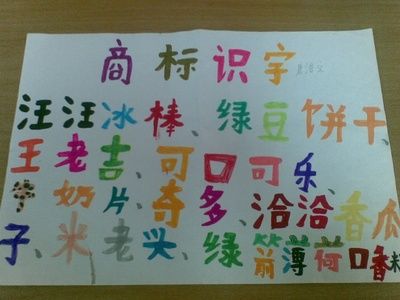 商标识字
汪汪冰棒、绿豆饼干、
王老吉、可口可乐、
牛奶片、奇多、洽洽香瓜
子、米老头、绿箭薄荷口香